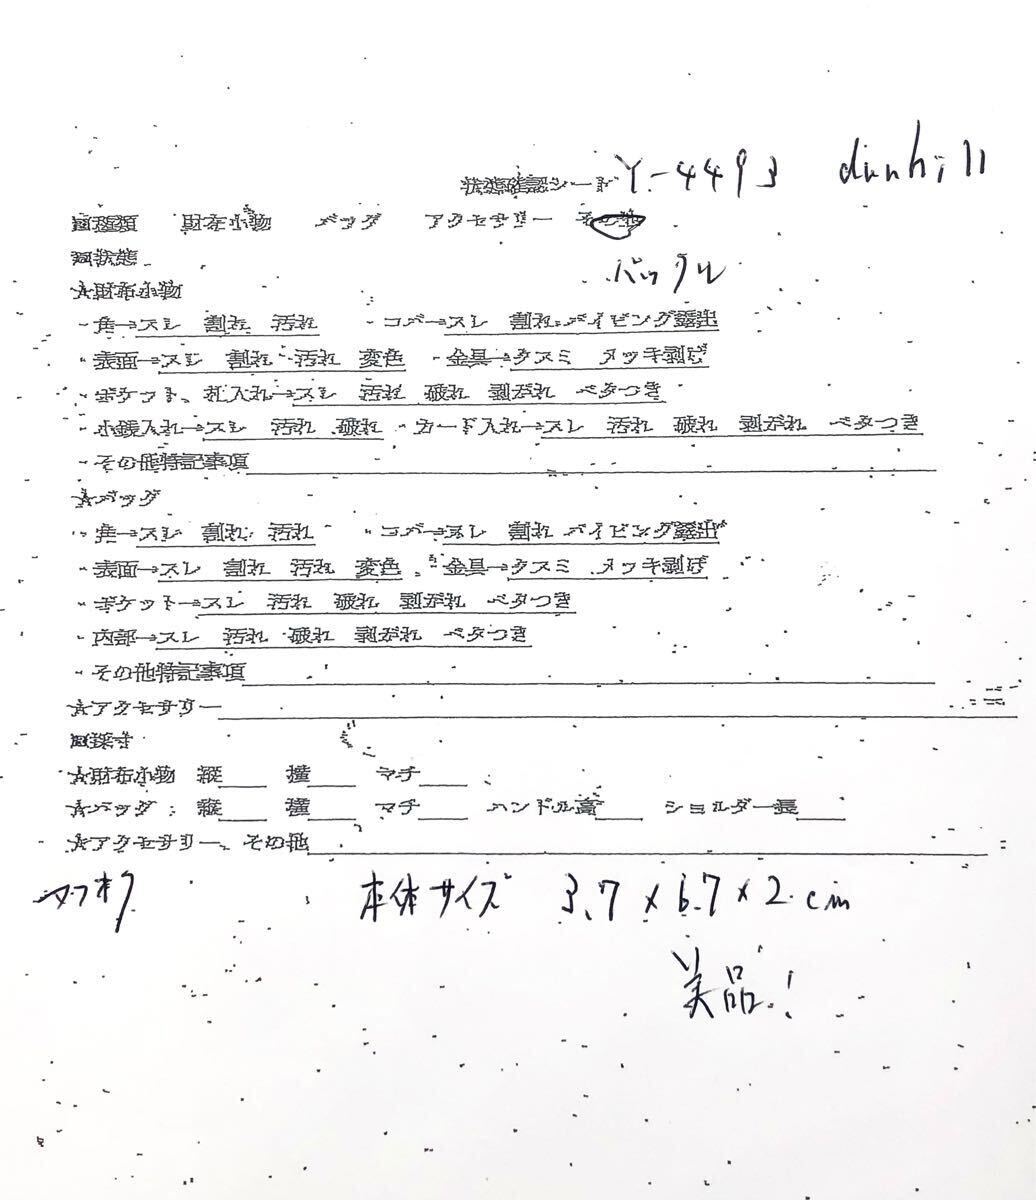 状態確認シート Y-4493 dunhill
□種類 財布小物 バッグ アクセサリー その他
□状態 バックル
★財布小物
・角→スレ 割れ 汚れ ・コバ→スレ 割れ パイピング露出
・表面→スレ 割れ 汚れ 変色 ・金具→クスミ メッキ剥げ
・ポケット、札入れ→スレ 汚れ 破れ 剥がれ ベタつき
・小銭入れ→スレ 汚れ 破れ ・カード入れ→スレ 汚れ 破れ 剥がれ ベタつき
・その他特記事項
★バッグ
・角→スレ 割れ 汚れ ・コバ→スレ 割れ パイピング露出
・表面→スレ 割れ 汚れ 変色 ・金具→クスミ メッキ剥げ
・ポケット→スレ 汚れ 破れ 剥がれ ベタつき
・内部→スレ 汚れ 破れ 剥がれ ベタつき
・その他特記事項
★アクセサリー
□採寸
★財布小物 縦 横 マチ
★バッグ: 縦 横 マチ ハンドル高 ショルダー長
★アクセサリー、その他
ヤフオク 本体サイズ 3.7×6.7×2.cm
美品!